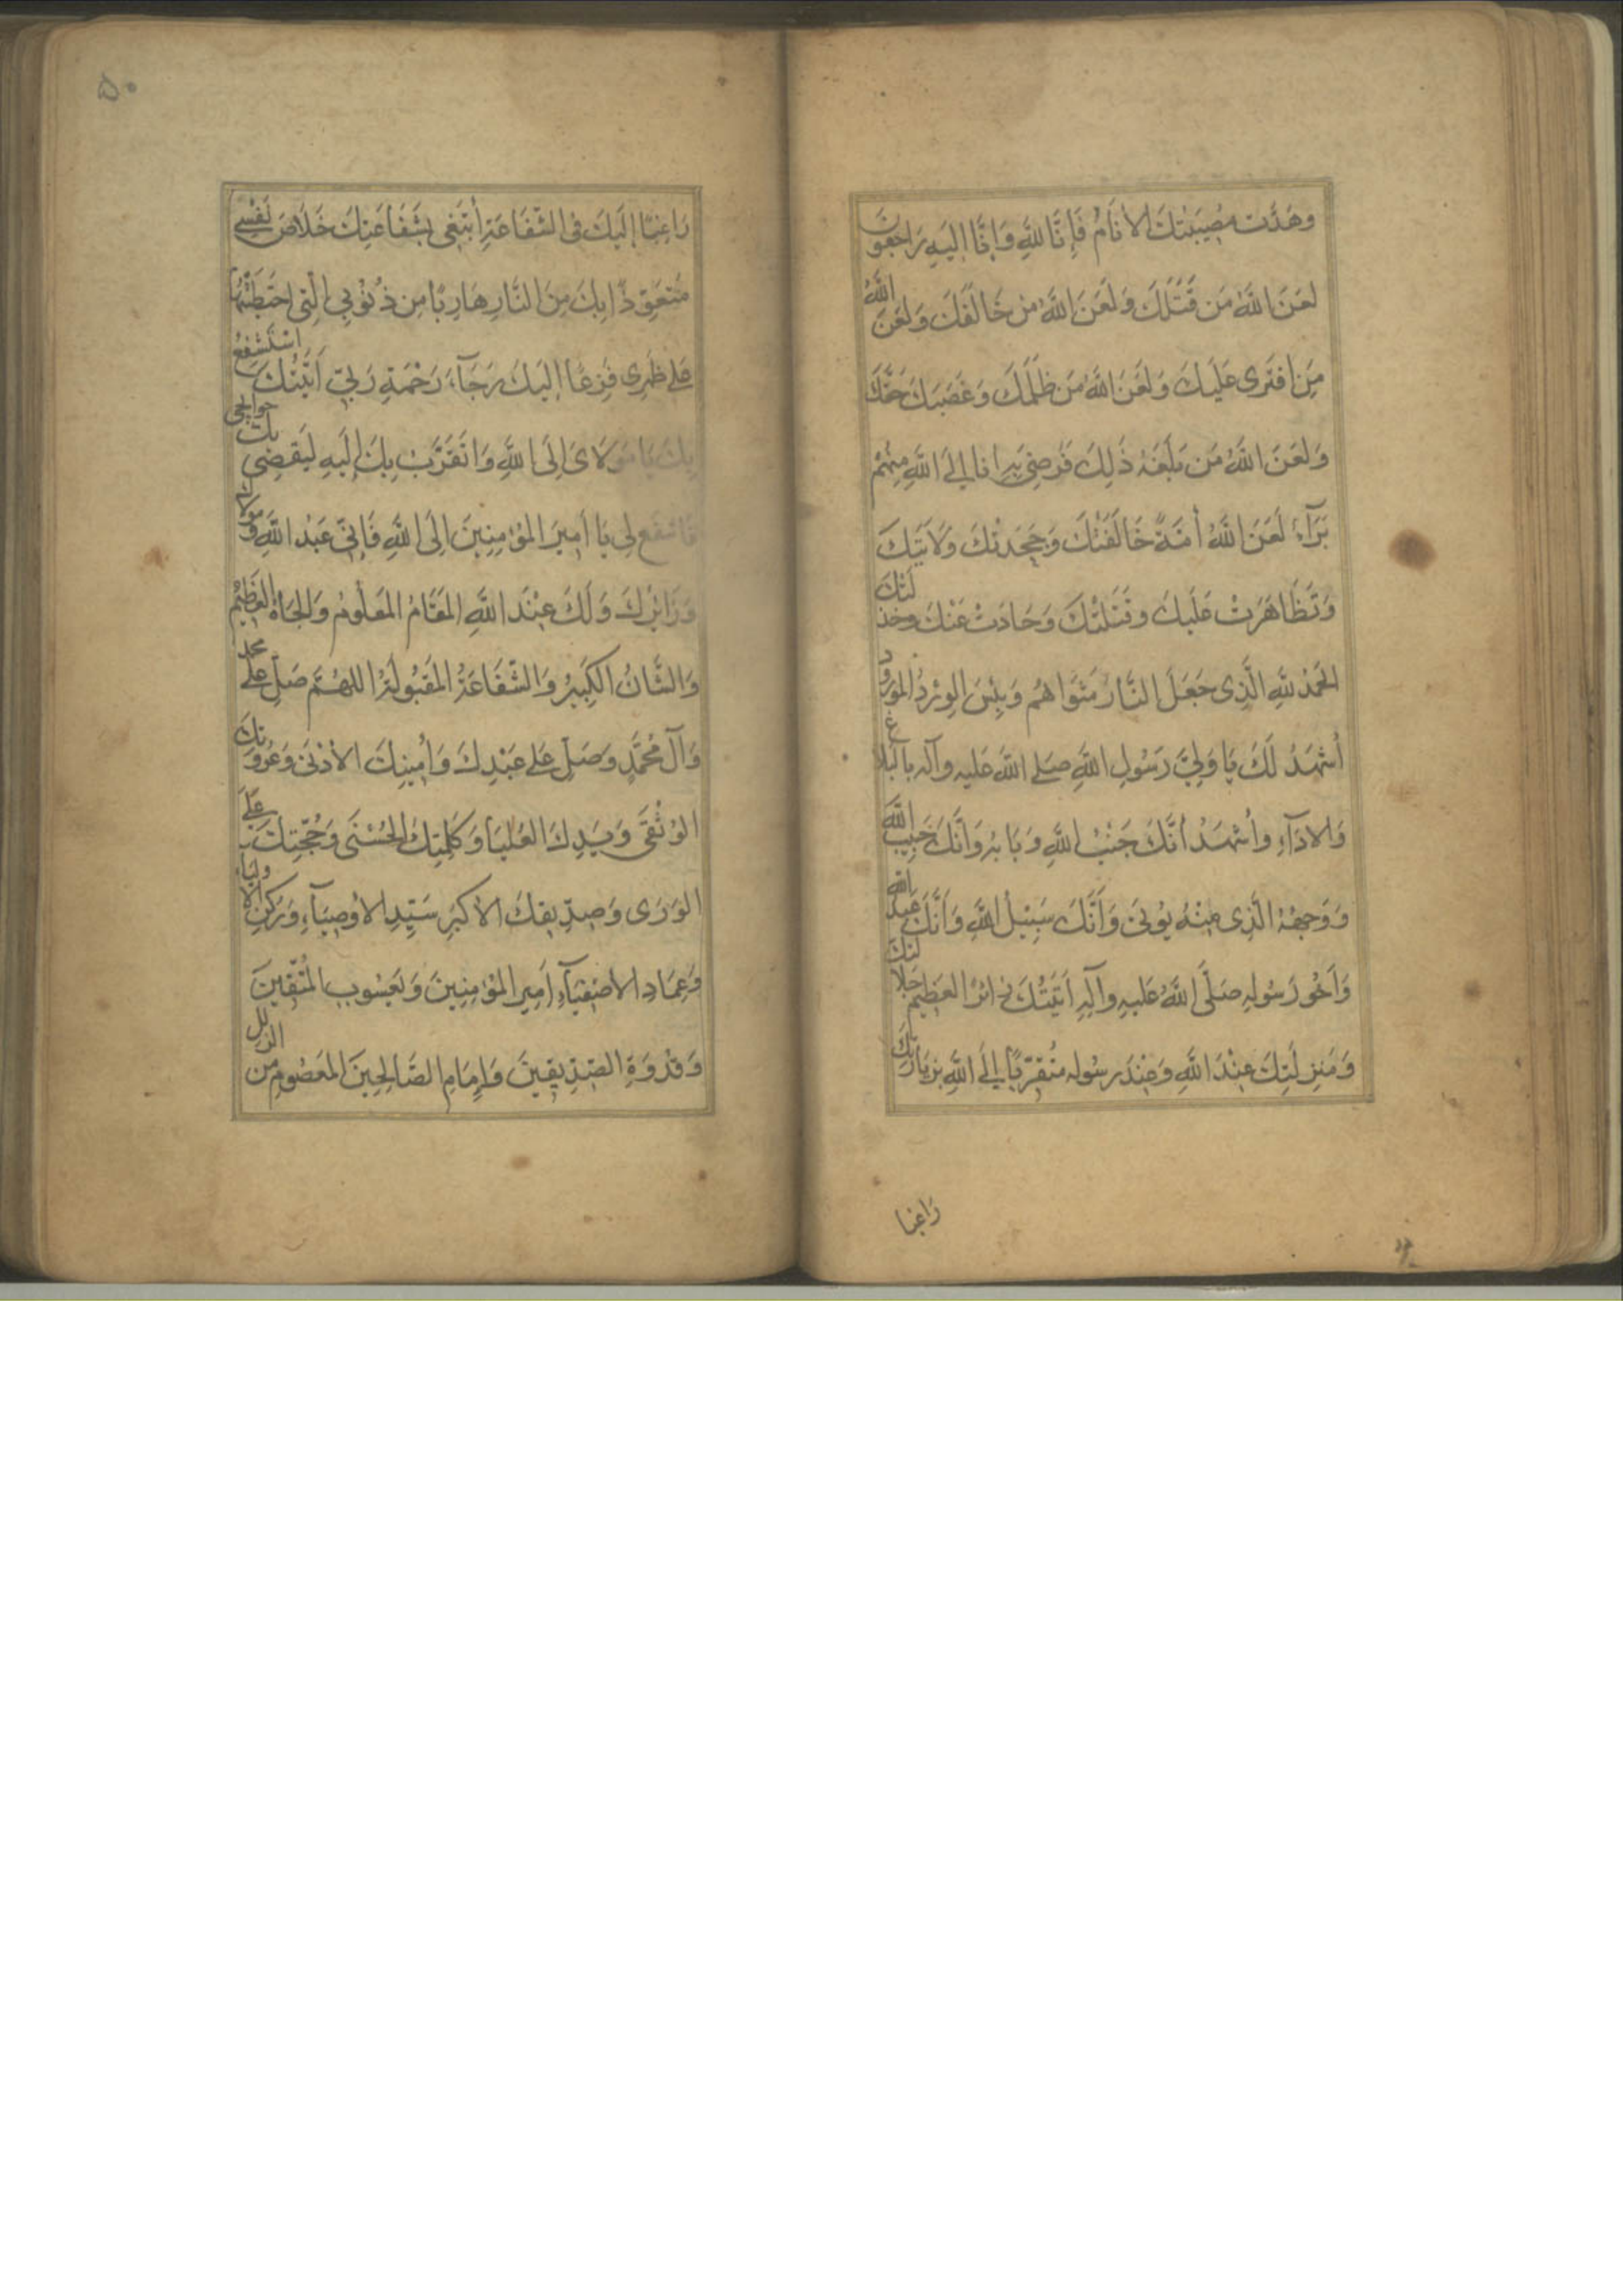 وَهَدَّت مُصِيبَتُكَ الأنَامُ فَإِنَّا لِلّهِ وَاِنَّا إلَيهِ رَاجِعُونَ
لَعَنَ اللّهُ مَن قَتَلَكَ وَلَعَنَ اللّهُ مَن خَالَفَكَ وَلَعَنَ اللّهُ
مَنِ افتَرى عَلَيكَ وَلَعَنَ اللّهُ مَن ظَلَمَكَ وَغَصَبَكَ حَقَّكَ
وَلَعَنَ اللّهُ مَن بَلَغَهُ ذَلِكَ فَرَضِيَ بِهِ انا اِلَى اللّهِ مِنهُم
بَرَآءٌ لَعَنَ اللّهُ أُمَّةً خَالَفَتْكَ وَجَحَدَتْكَ وَلاَيَتَكَ
وَتَظَاهَرَتْ عَلَيكَ وَقَتَلَتْكَ وَحَادَتْ عَنْكَ وخذلَتْكَ
الحَمدُ لِلّهِ الَّذِى جَعَلَ النَّارَ مَثوَاهُم وَبِئسَ الوِردُ المَورُود
أَشهَدُ لَكَ يَا وَلِيَّ رَسُولِ اللّهِ صَلى اللّهُ عَلَيهِ وآلِه بالبَلاغ
وَالادَآءِ وأشهَدُ أنَّكَ جَنْبُ اللّهِ وَبَابُهُ وَاَنَّكَ حَبِيبُ اللّهِ
وَوَجهُهُ الَّذِى مِنْهُ يُوتَى وَاَنَّكَ سَبِيلُ اللّهِ وَاَنَّكَ عَبدُ اللّهِ
وَاَخُو رَسُولِهِ صَلَّى اللّهُ عَلَيهِ وآلِهِ اَتَيتُكَ زائرًا لعَظِيمِ جَلالَتِكَ
وَمَنزِلَتِكَ عِنْدَ اللّهِ وَعِنْدَ رسُولِه مُتَقَرِّبًا اِلَى اللّهِ بِزِيَارَتِكَ
رَاغِبًا
۵۰
رَاغِبًا إلَيكَ فى الشَّفَاعَةِ أبتَغى بِشَفَاعَتِكَ خَلَاصَ نَفْسِي
مُتَعَوِّذًا بِكَ مِنَ النَّارِ هَارِبًا مِن ذُنُوبِي الَّتِى احتَطَبْتُهَا
عَلى ظَهرِى فَزِعًا إلَيكَ رَجَآءَ رَحْمَةِ رَبِّي اَتَيْتُكَ اسْتَشفِعُ
بِكَ يَا مَولَاىَ اِلَى اللّهِ وَاتَقَرَّبُ بِكَ إلَيهِ لِيَقضِىَ بك حوائجى
فَاشفَع لِي يَا اَمِيرَ المُؤمِنِينَ اِلَى اللّهِ فَاِنِّى عَبْدُ اللّهِ وَمَولاكَ
وَزَائِرُكَ وَلَكَ عِنْدَ اللّهِ المَقَامُ المَعلُومُ وَالجَاهُ العَظِيمُ
وَالشَّانُ الكَبِيرُ وَالشَّفَاعَةُ المَقبُولَةُ اللهُمَّ صَلِّ عَلى محمد
وَآلِ مُحَمَّدٍ وَصَلِّ عَلى عَبْدِكَ وَاَمِينِكَ الأَدْنَى وَعُروَتِكَ
الوُثقَى وَيَدِكَ العُليَا وَكَلِمَتِكَ الحُسْنَى وَحُجَّتِكَ عَلَى
الوَرَى وَصِدِّيقِكَ الأَكبَرِ سَيِّدِ الأوصِيَآءِ وَرُكنِ الأَولِيَاءِ
وَعِمَادِ الأصفِيَآءِ اَمِيرِ المُؤمِنِينَ وَيَعسُوبِ المُتَّقِينَ
وَقُدوَةِ الصِّدِّيقِينَ وَاِمَامِ الصَّالِحِينَ المَعصُومِ مِن الزلل